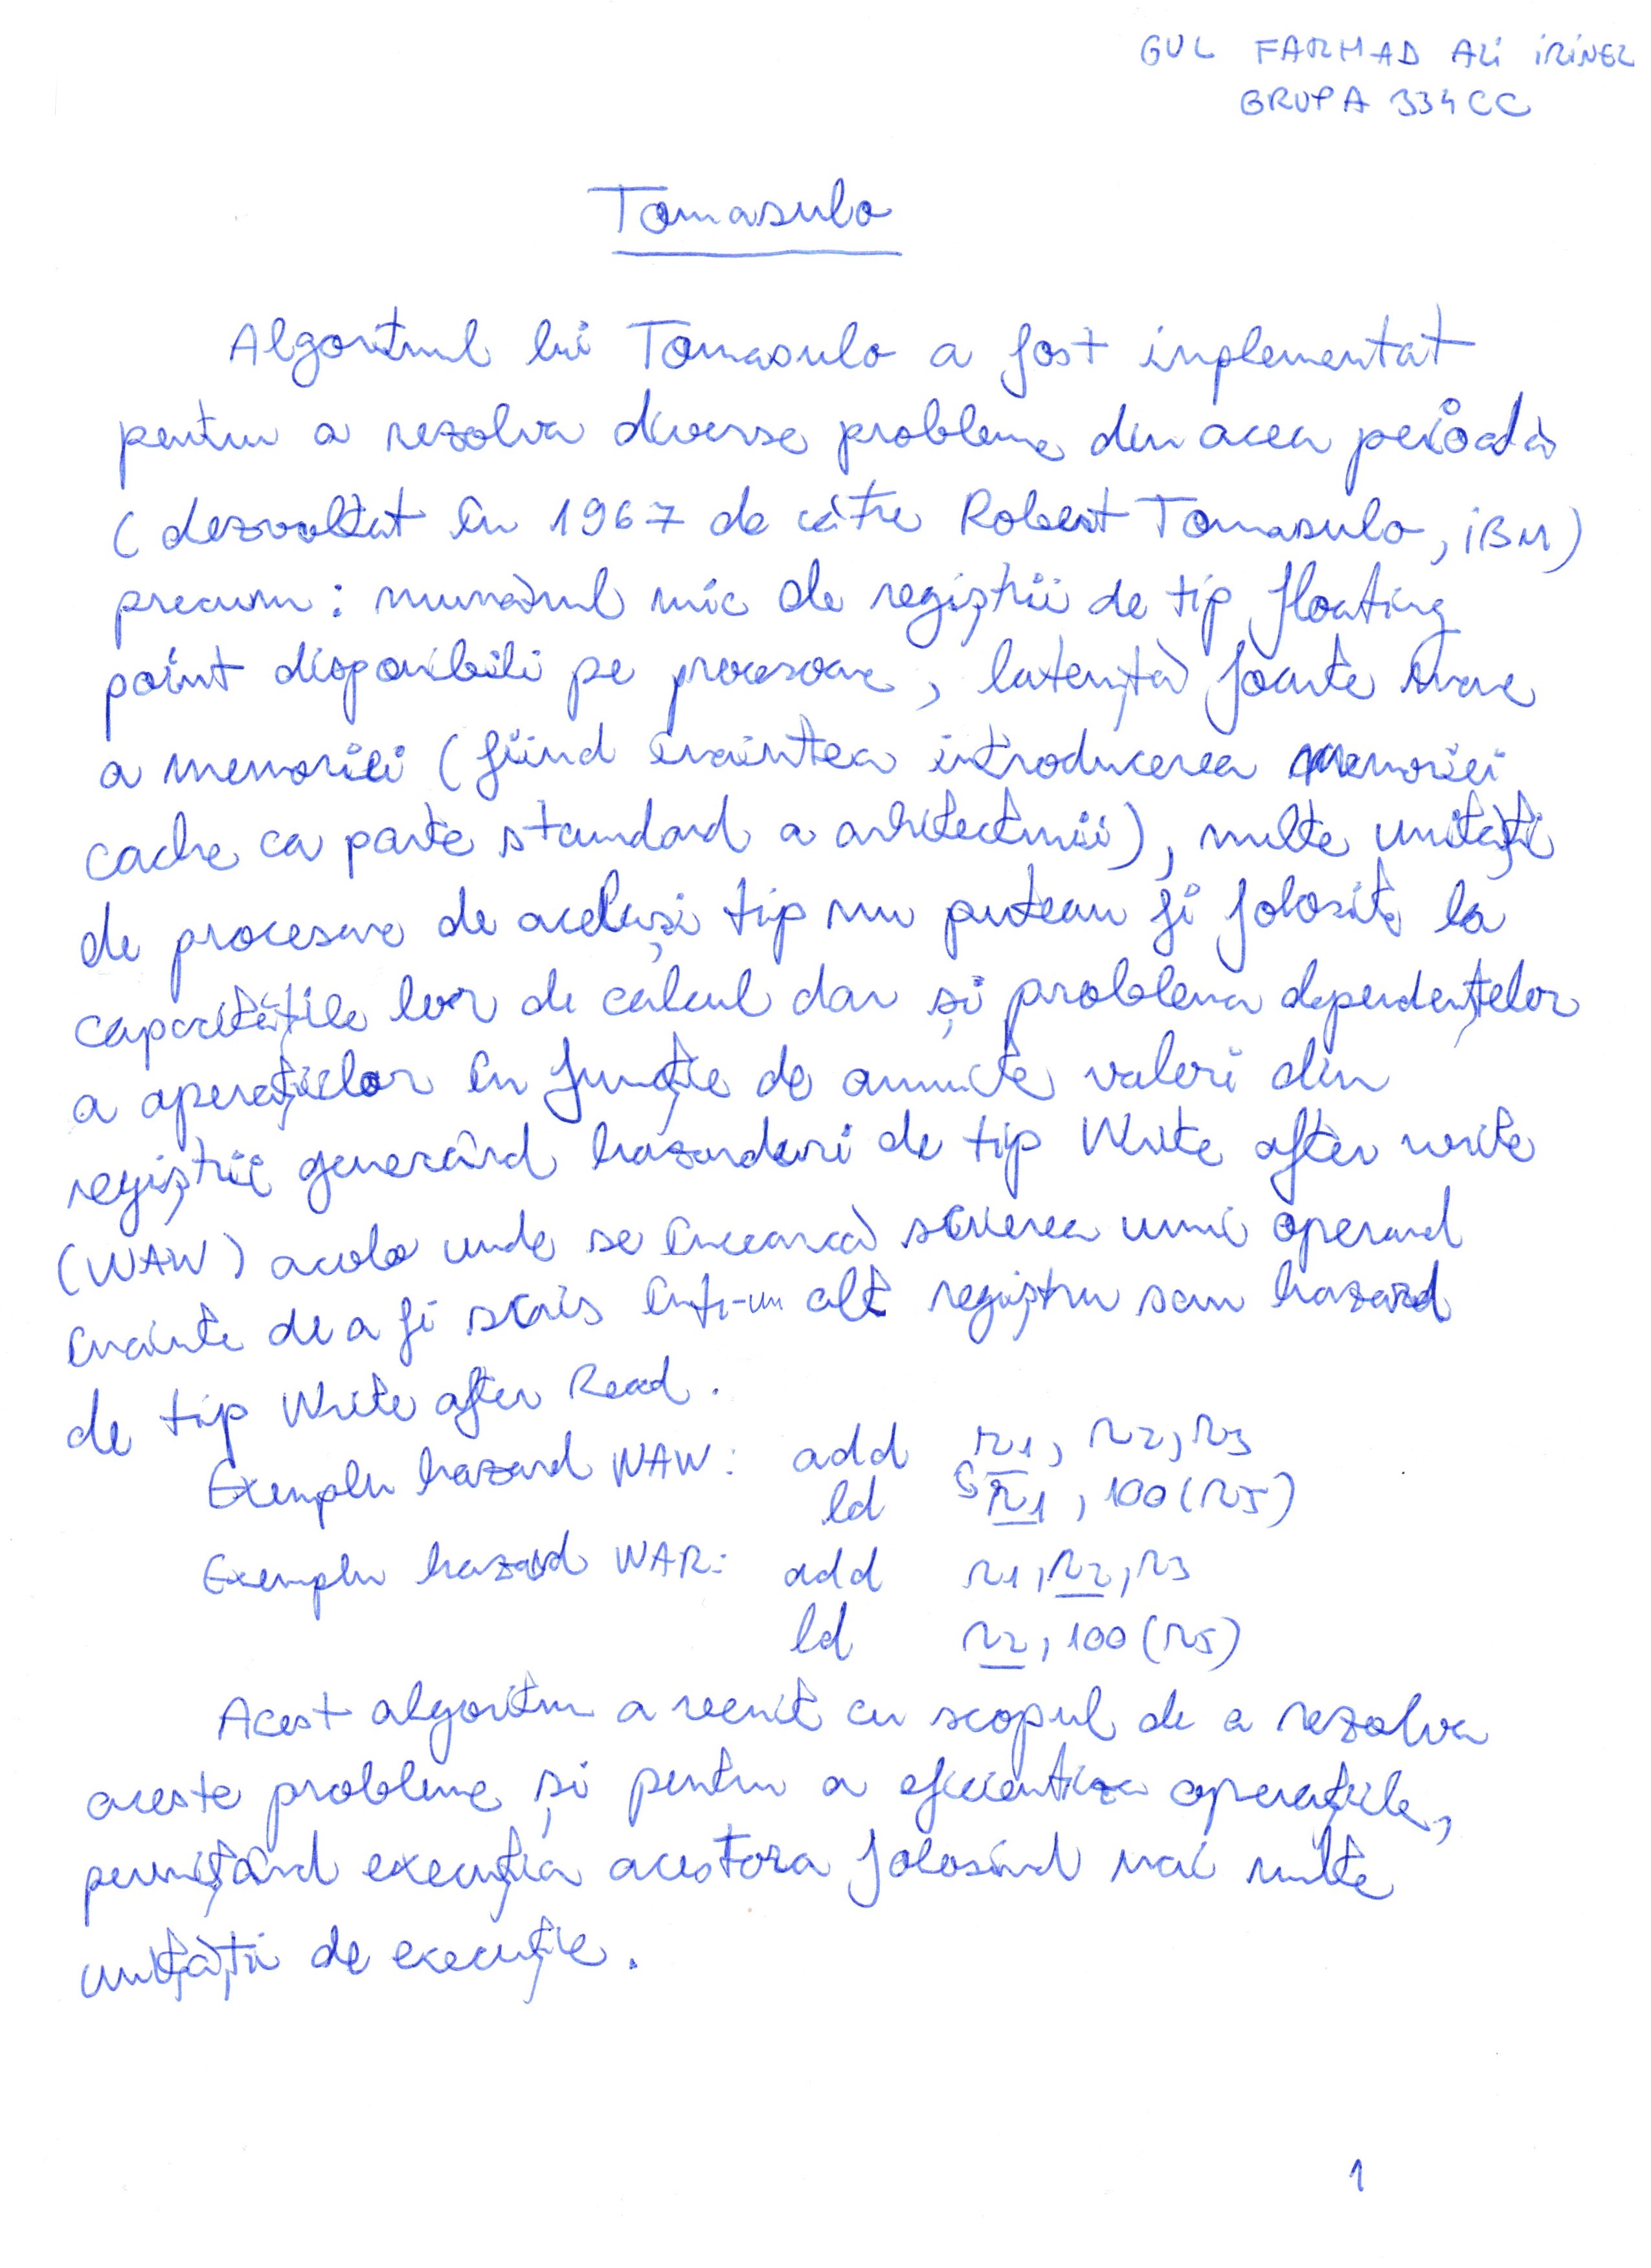 GUL FARHAD ALI IRINEL
GRUPA 334CC
Tomasulo
Algoritmul lui Tomasulo a fost implementat
pentru a rezolva diverse probleme din acea perioadă
(dezvoltat în 1967 de către Robert Tomasulo, IBM)
precum: numărul mic de regiștrii de tip floating
point disponibili pe procesoare, latență foarte mare
a memoriei (fiind înaintea introducerea memoriei
cache ca parte standard a arhitecturii), multe unități
de procesare de același tip nu puteau fi folosite la
capacitățile lor de calcul dar și problema dependențelor
a operațiilor în funcție de anumite valori din
regiștrii generând hazarduri de tip Write after write
(WAW) acolo unde se încearcă scrierea unui operand
înainte de a fi scris într-un alt registru sau hazard
de tip Write after Read.
Exemplu hazard WAW: add r1, r2, r3
ld r1, 100(r5)
Exemplu hazard WAR: add r1, r2, r3
ld r2, 100(r5)
Acest algoritm a venit cu scopul de a rezolva
aceste probleme și pentru a eficientiza operațiile,
permițând execuția acestora folosind mai multe
unități de execuție.
1